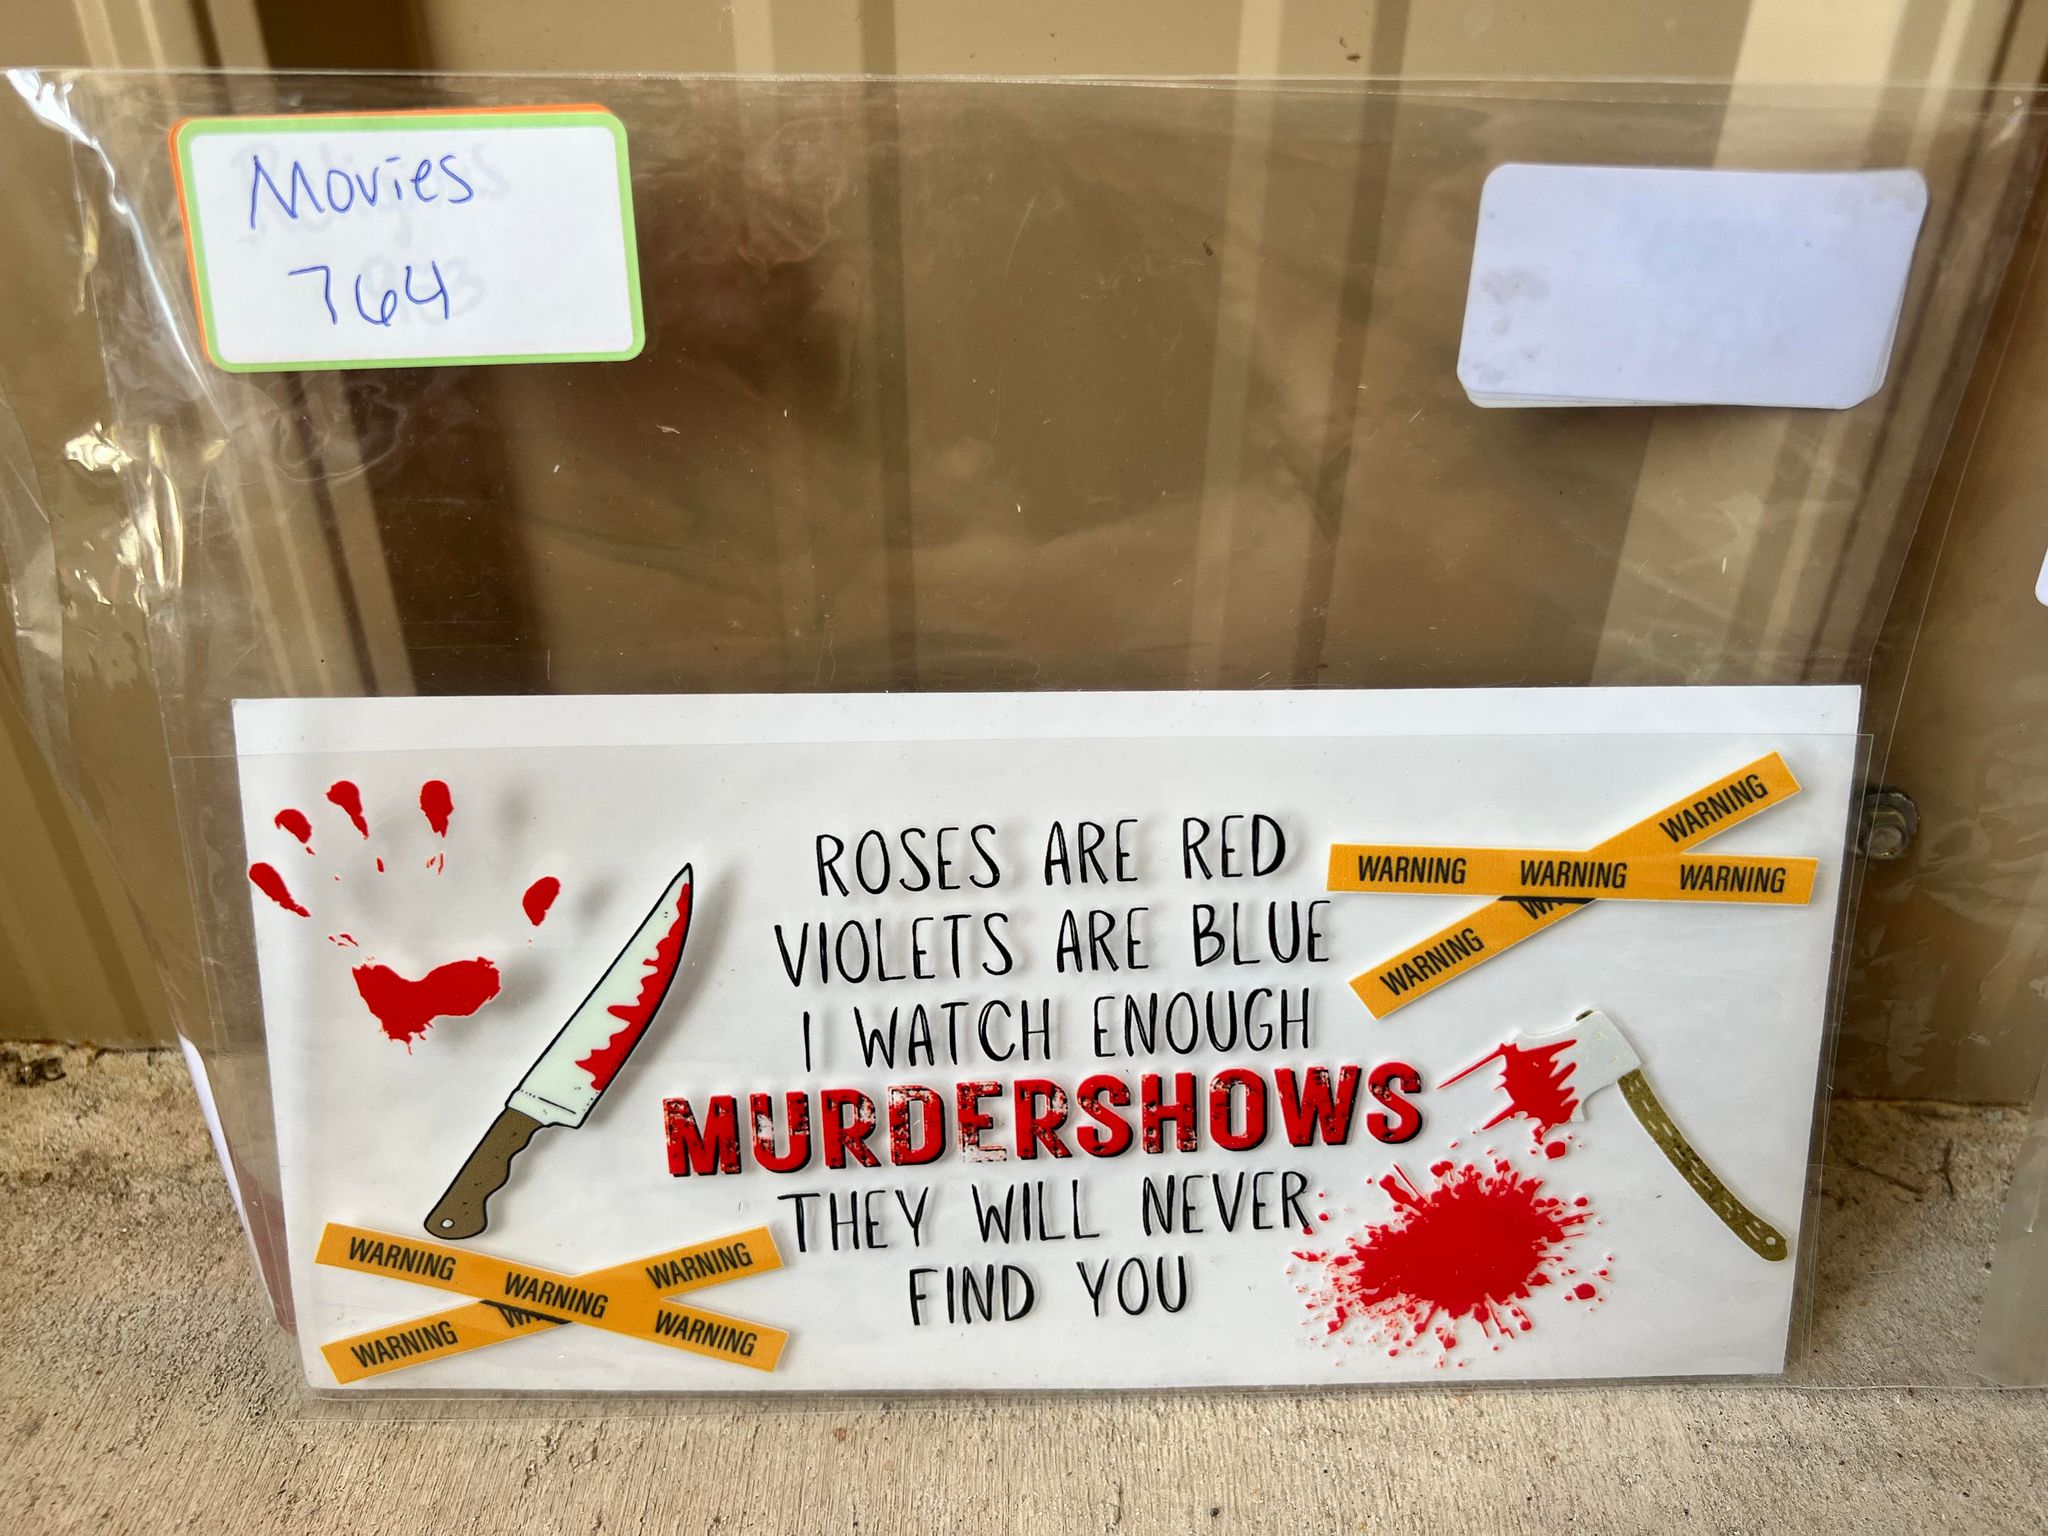 Movies
764
ROSES ARE RED
VIOLETS ARE BLUE
I WATCH ENOUGH
MURDERSHOWS
THEY WILL NEVER
FIND YOU
WARNING
WARNING WARNING WARNING
WARNING
WARNING WARNING WARNING
WARNING WARNING